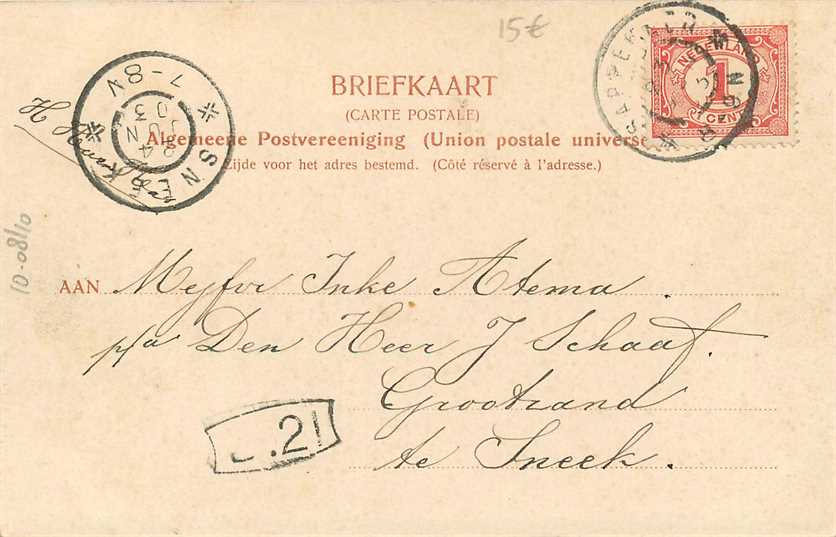 15€
BRIEFKAART
(CARTE POSTALE)
Algemeene Postvereeniging (Union postale universe
Zijde voor het adres bestemd. (Côté réservé à l'adresse.)
NEDERLAND
1
1 CENT
SNEEK
7-8V
24
03
H
10-08/10
AAN Mejfvr Inke Atema.
p/a Den Heer J Schaaf.
Grootzand
te Sneek.
.21